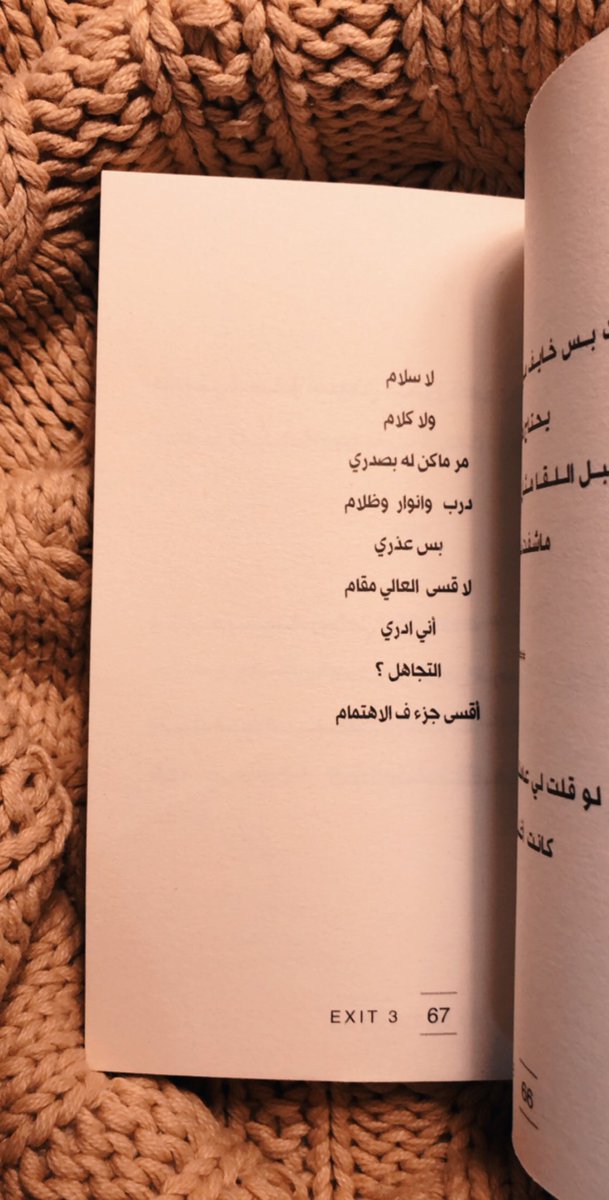 لا سلام
ولا كلام
مر ماكن له بصدري
درب وانوار وظلام
بس عذري
لا قسى العالي مقام
أني ادري
التجاهل ؟
أقسى جزء ف الاهتمام
EXIT 3 67
بس خايف
يحتاج
اللقا
لو قلت لي
كانت
66